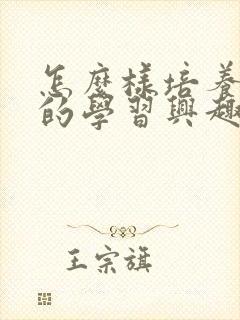 怎麼樣培養
的學習興趣
王宗旗